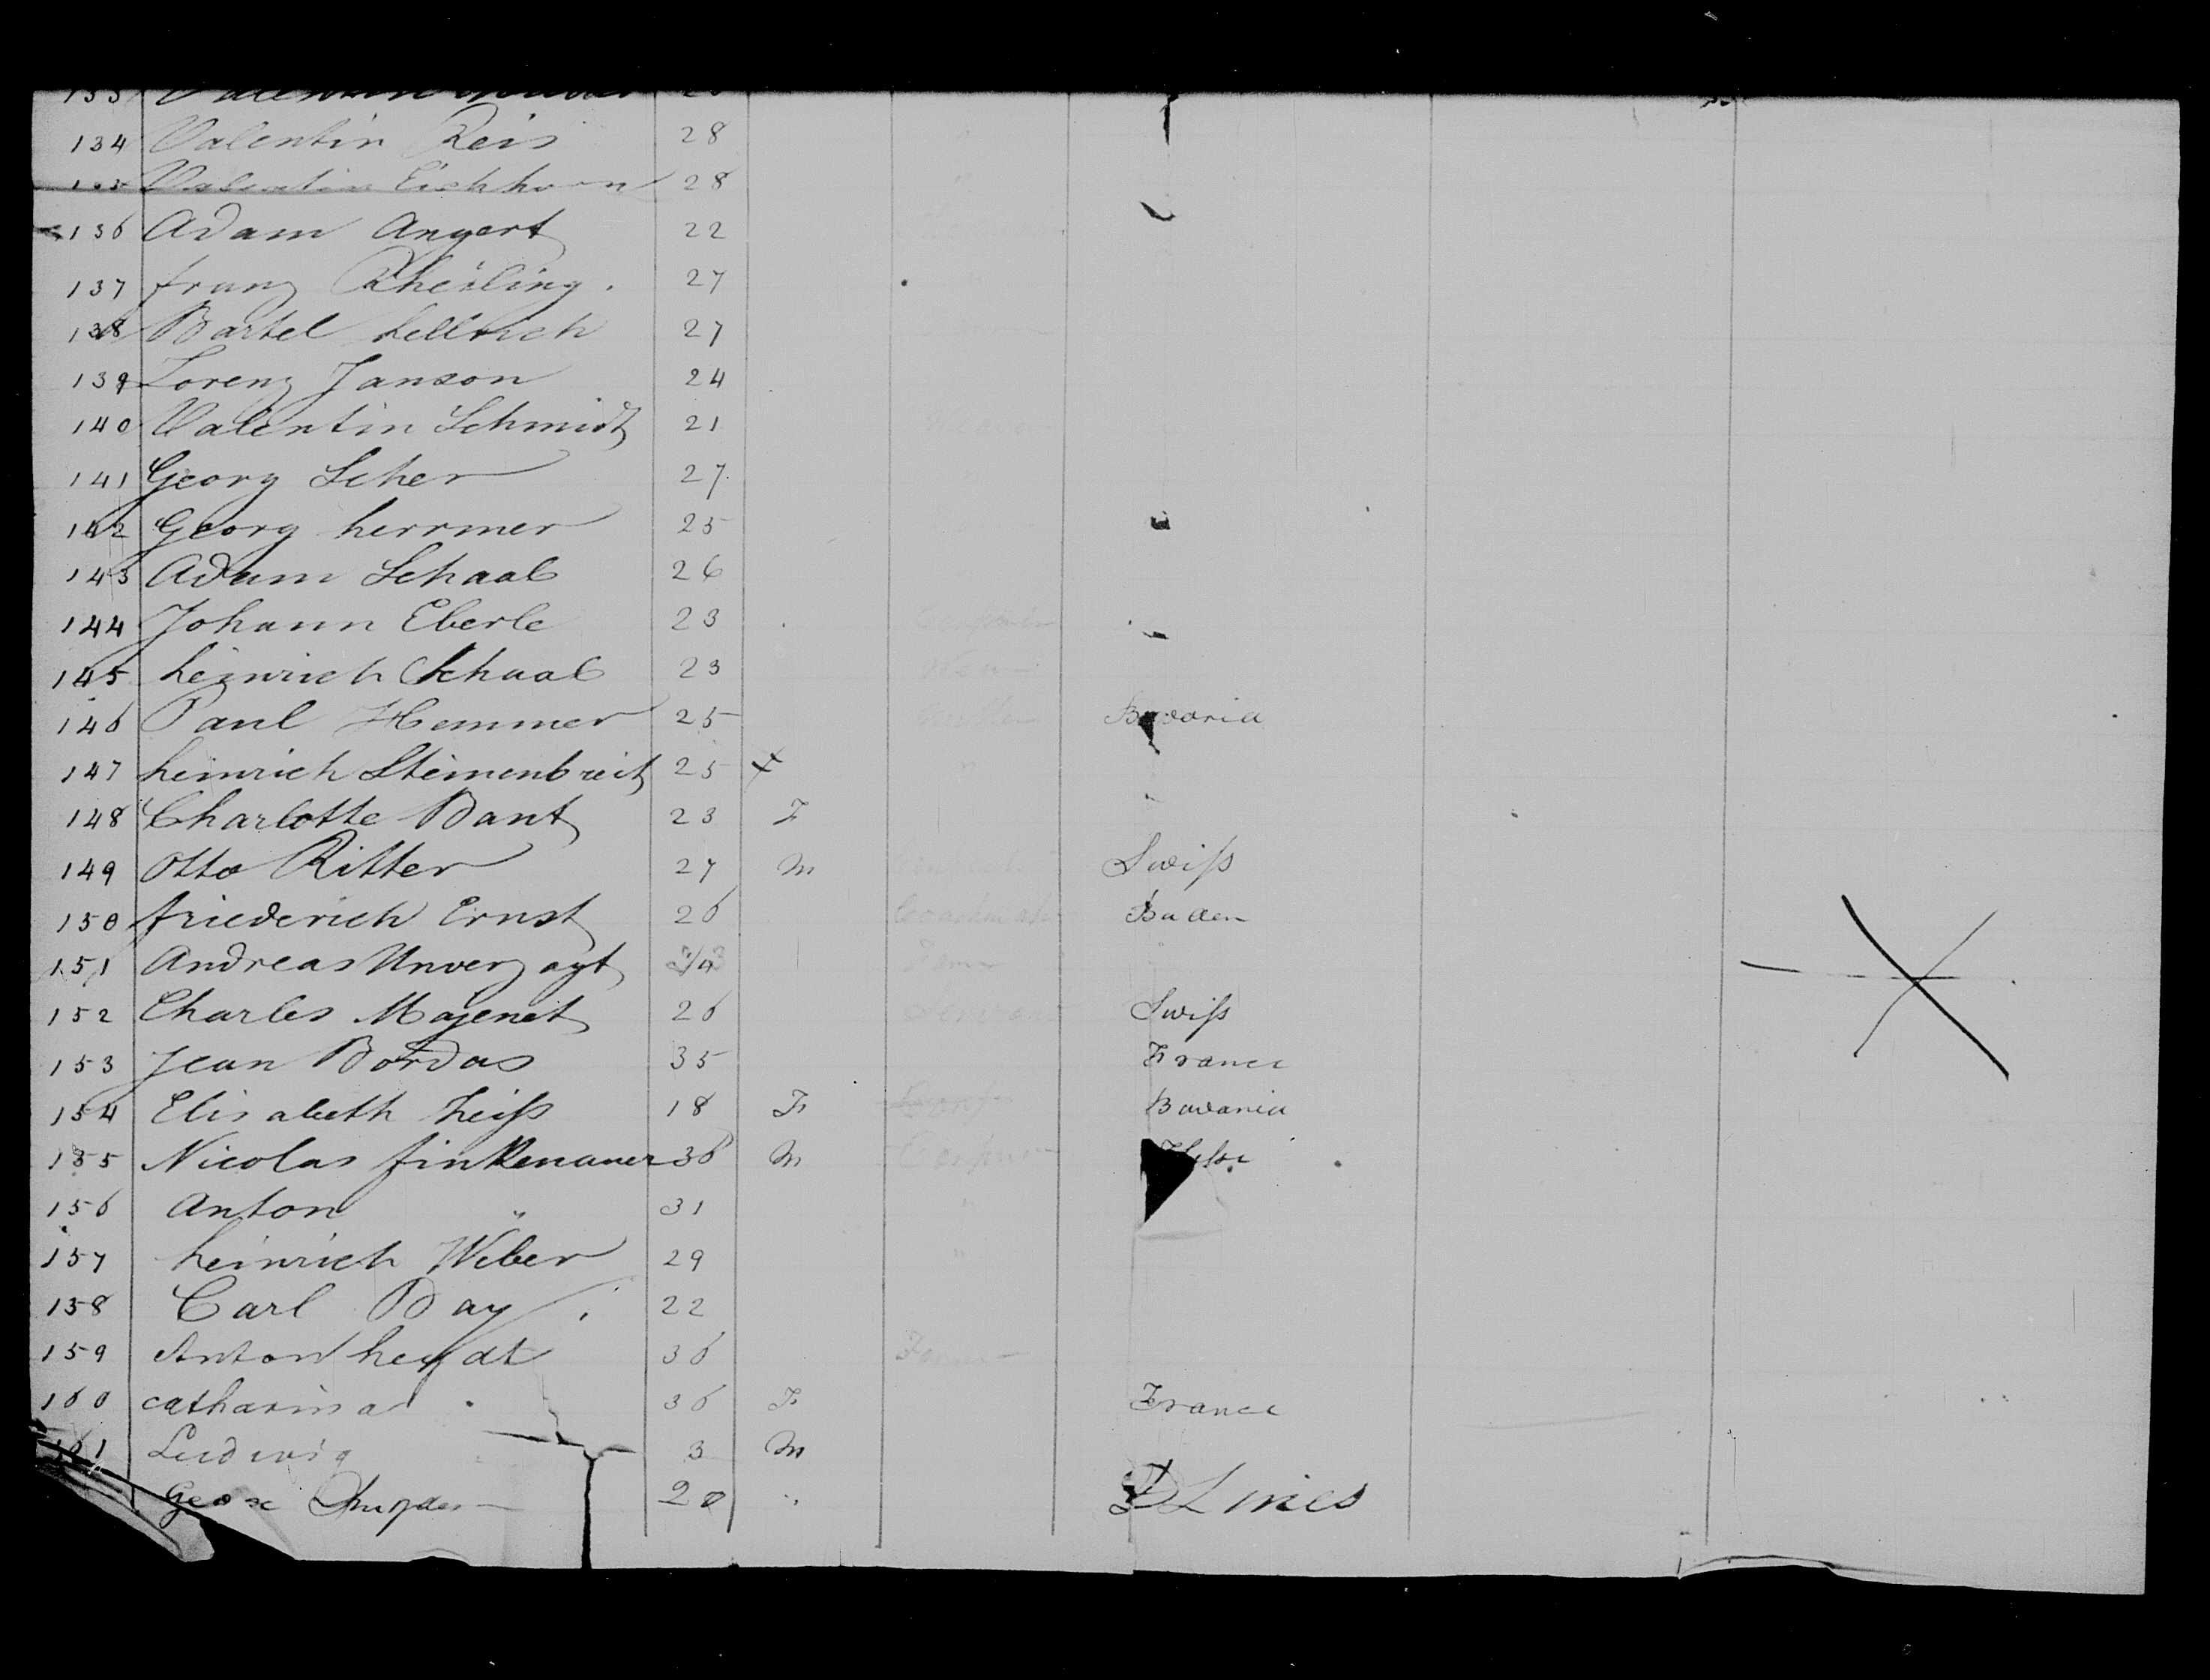 134 Valentin Reis 28
Valentin Eichhorn 28
136 Adam Angert 22
137 franz Rheiling. 27
138 Bartel hellrich 27
139 Lorenz Janson 24
140 Valentin Schmidt 21
141 Georg Scher 27
142 Georg herrmer 25
143 Adam Schaab 26
144 Johann Eberle 23
145 heinrich Schaab 23
146 Paul Hemmer 25 Bavaria
147 heinrich Steinenbreit 25
148 Charlotte Bant 23 F
149 Otto Ritter 27 M Swiss
150 friederich Ernst 26 Baden
151 Andreas Unverzagt
152 Charles Majenet 26 Swiss
153 Jean Bordas 35 France
154 Elisabeth heiss 18 F Bavaria
155 Nicolas finkenauer 36 M Hesse
156 Anton " 31
157 heinrich Weber 29 "
158 Carl Bay 22
159 Anton heydt 36
160 catharina 36 F France
161 Ludwig 3 M
20